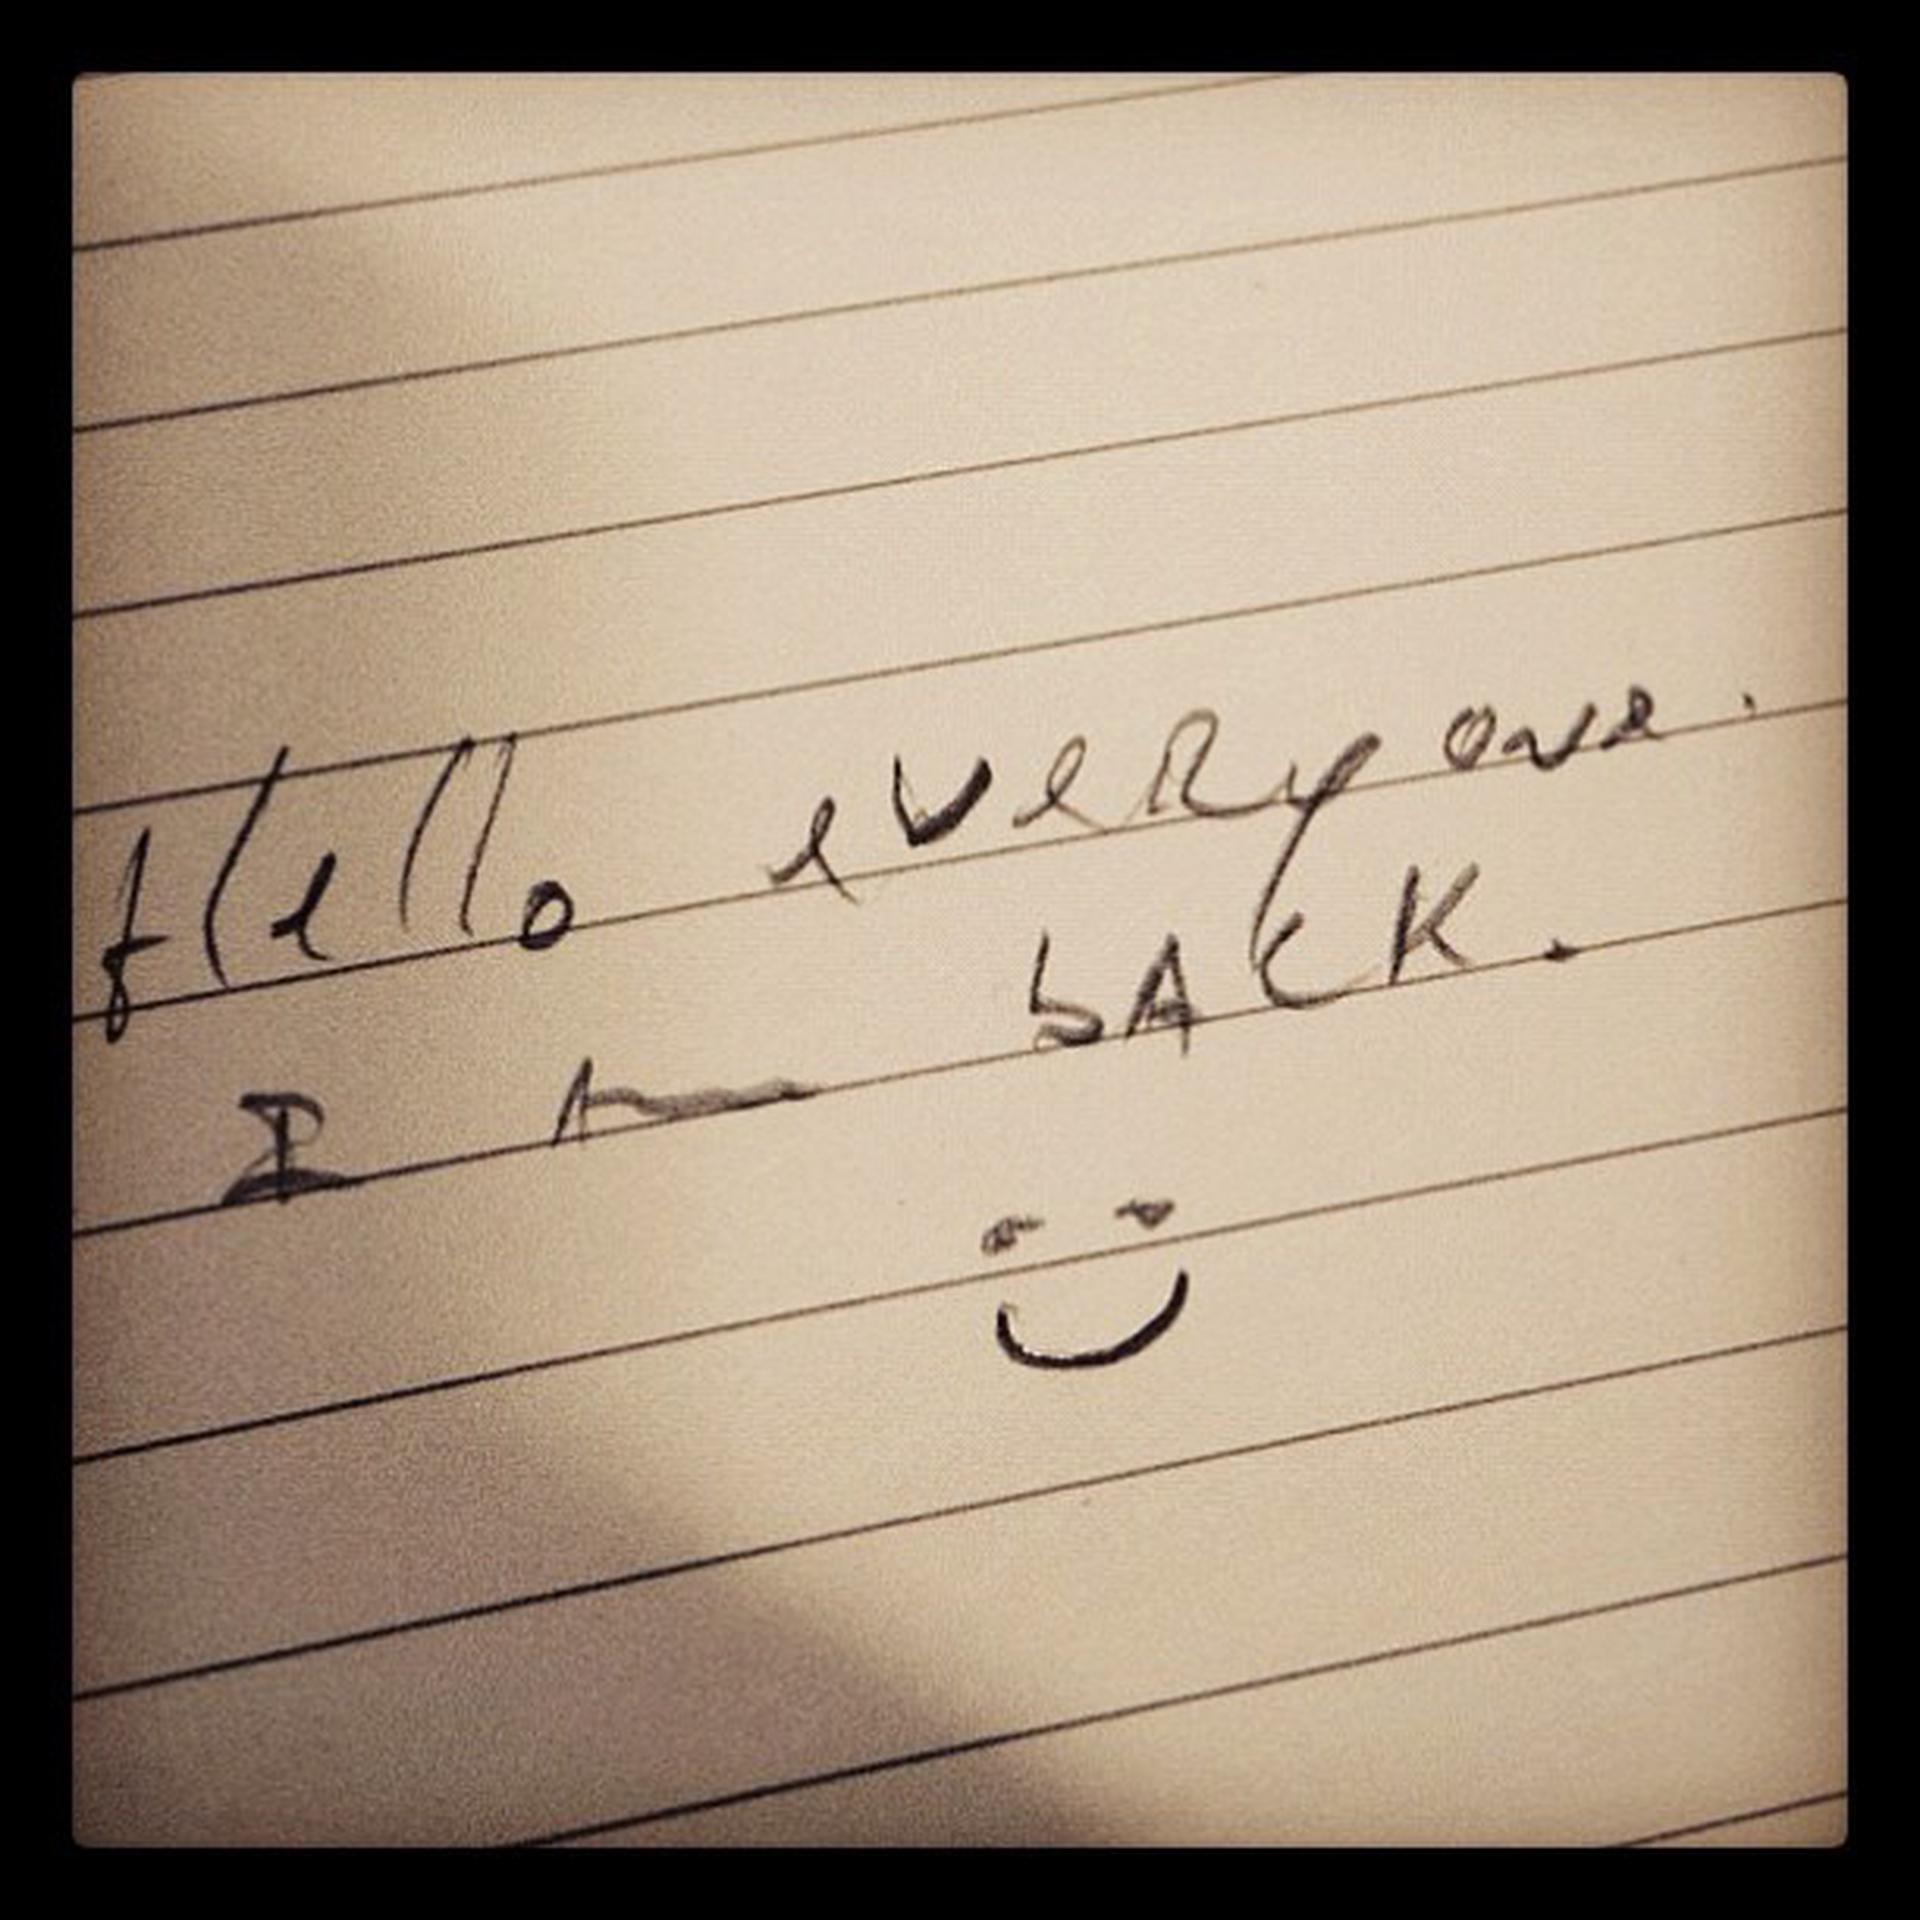 Hello everyone.
I Am bACK.